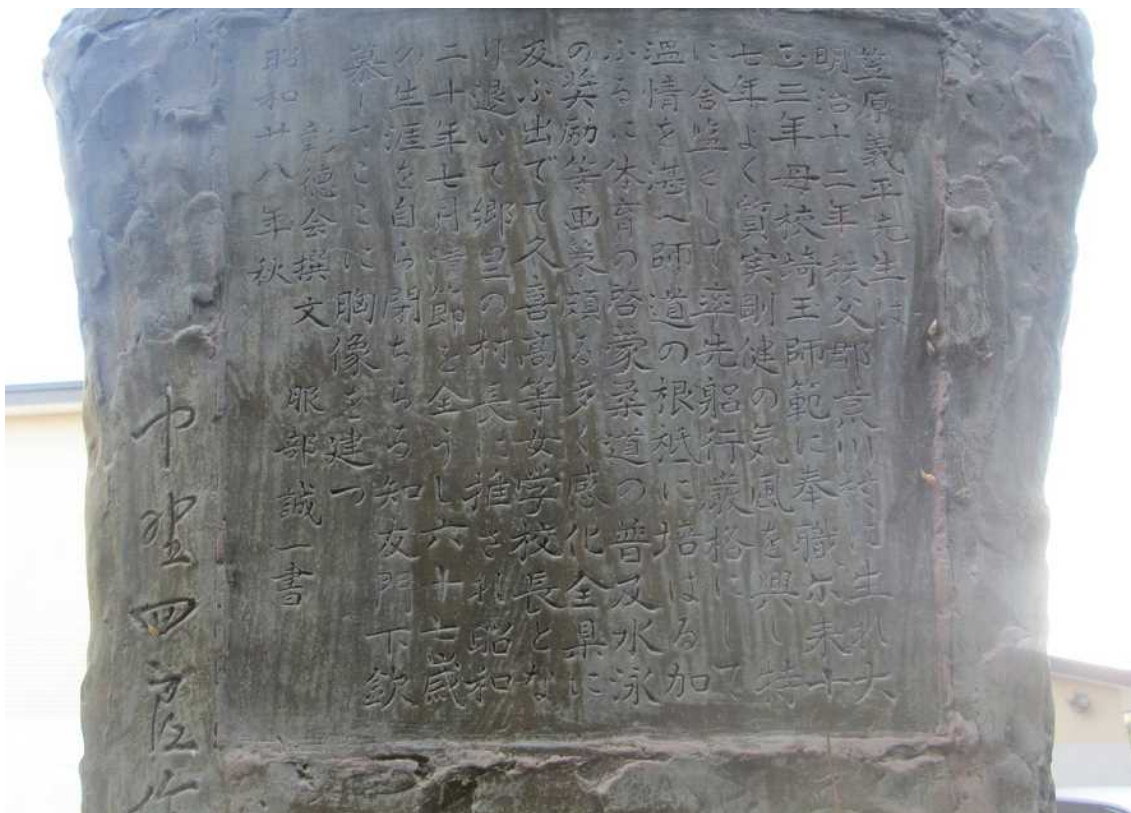 笠原義平先生は
明治十二年秩父郡川村に生れ大
正二年母校埼玉師範に奉職尓来十
七年よく質実剛健の気風を興し特
に舎監として率先躬行厳格にして
温情を湛へ師道の根柢に培はる加
ふるに体育の啓蒙柔道の普及水泳
の奨励等画策頗る多く感化全県に
及ぶ出でて久喜高等女学校長とな
り退いて郷里の村長に推され昭和
二十年七月清節を全うし六十七歳
の生涯を自ら閉ぢらる知友門下欽
慕しここに胸像を建つ
彰徳会撰文 服部誠一書
昭和廿八年秋
中野四郎作